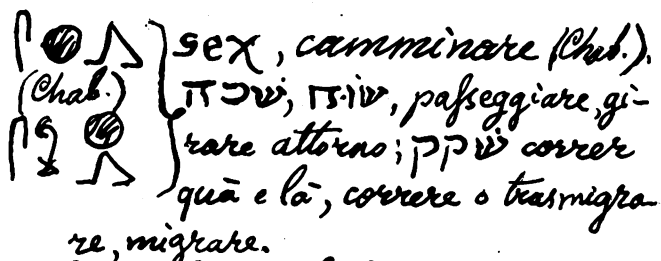 𓋴𓐍𓂻 } sex, camminare (Chab.).
(Chab.) שׂכה, שׂוּח, passeggiare, gi-
𓋴𓏲𓐍𓂻 rare attorno; שׁקק correr
quà e là, correre o trasmigra-
re, migrare.